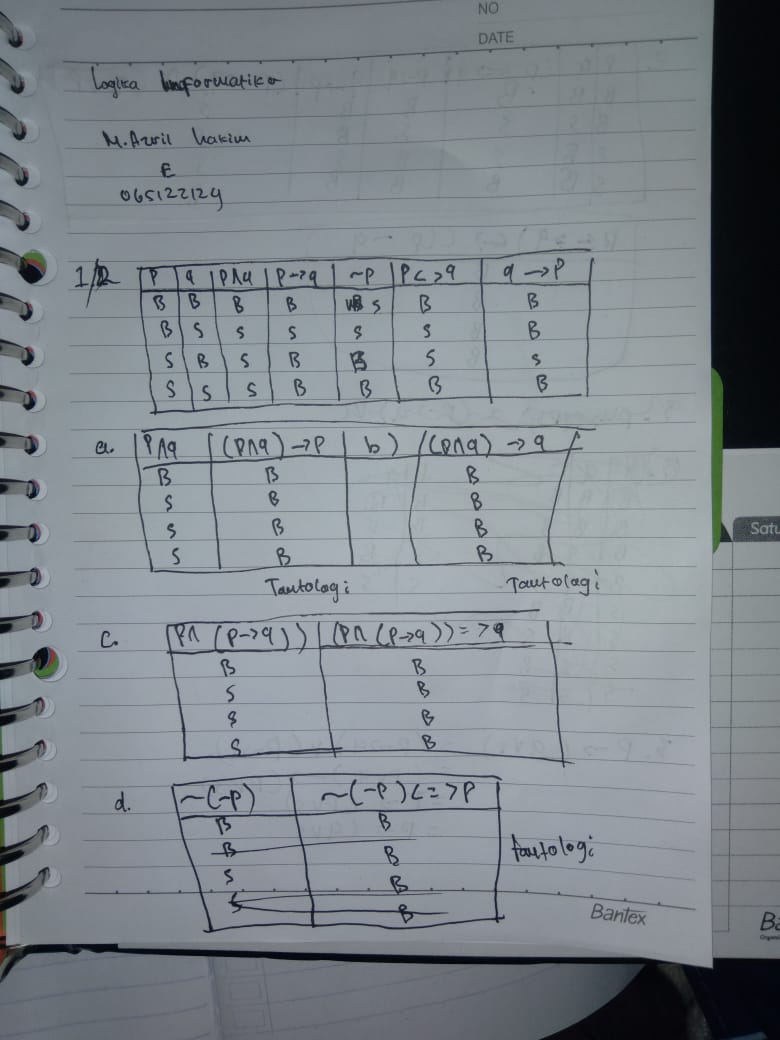 NO
DATE
Logika Informatika
M. Azril hakim
E
065122124
1/2 P q P∧q P→q ~P P<>q q→P
B B B B S B B
B S S S S S B
S B S B B S S
S S S B B B B
a. P∧q (P∧q)→P b) (P∧q)→q
B B B
S B B
S B B
S B B
Tautologi Tautologi
c. P∧(P→q)) (P∧(P→q))=>q
B B
S B
S B
S B
d. ~(-P) ~(-P)<=>P
B B
B B
S B tautologi
S B
Bantex
Satu